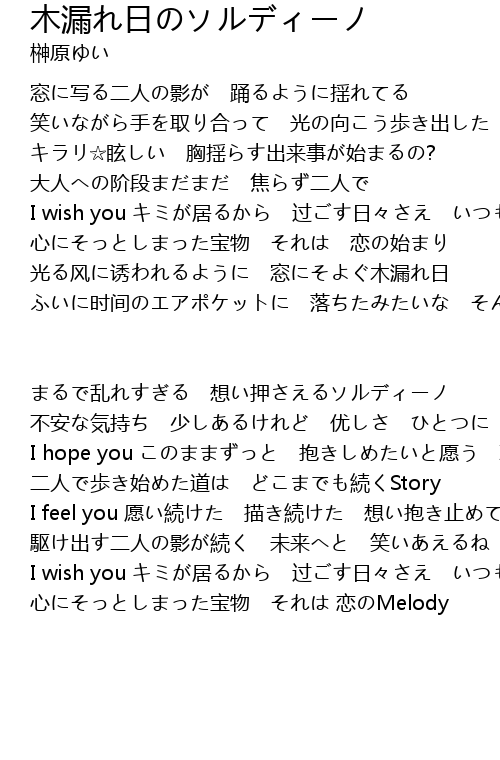 木漏れ日のソルディーノ
榊原ゆい
窓に写る二人の影が　踊るように揺れてる
笑いながら手を取り合って　光の向こう歩き出した
キラリ☆眩しい　胸揺らす出来事が始まるの?
大人への阶段まだまだ　焦らず二人で
I wish you キミが居るから　过ごす日々さえ　いつ
心にそっとしまった宝物　それは　恋の始まり
光る风に诱われるように　窓にそよぐ木漏れ日
ふいに时间のエアポケットに　落ちたみたいな　そん
まるで乱れすぎる　想い押さえるソルディーノ
不安な気持ち　少しあるけれど　优しさ　ひとつに
I hope you このままずっと　抱きしめたいと愿う
二人で歩き始めた道は　どこまでも続くStory
I feel you 愿い続けた　描き続けた　想い抱き止めて
駆け出す二人の影が続く　未来へと　笑いあえるね
I wish you キミが居るから　过ごす日々さえ　いつ
心にそっとしまった宝物　それは 恋のMelody